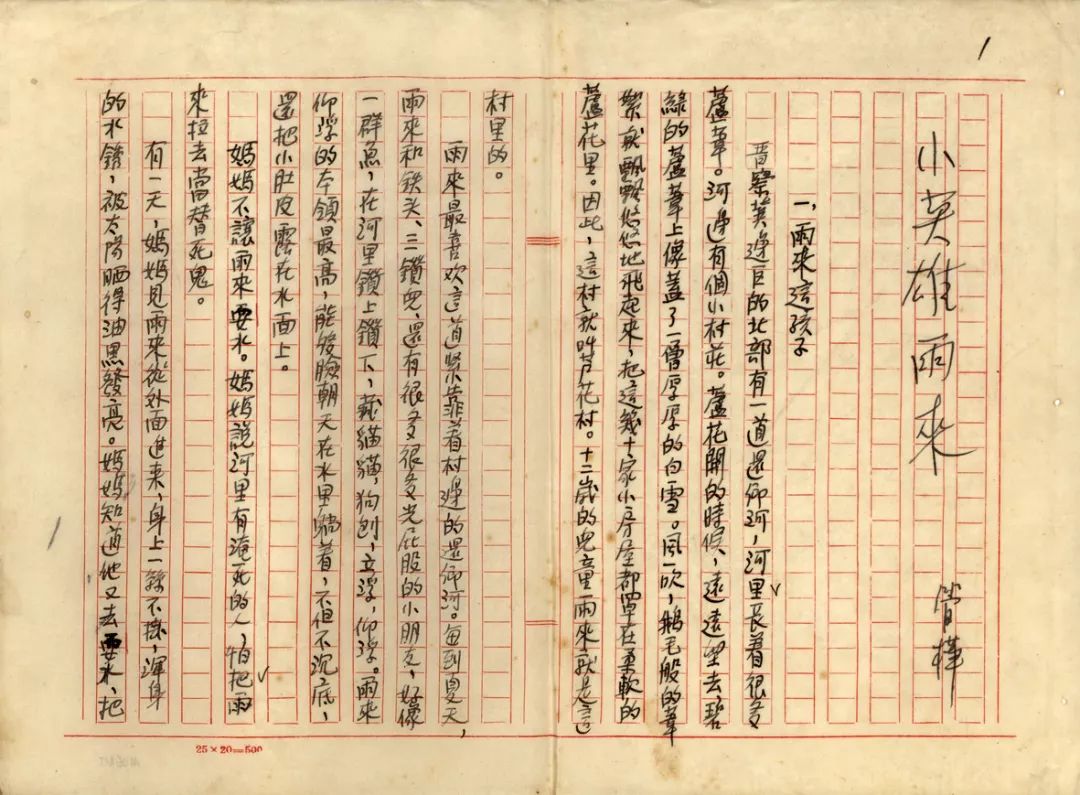 1
小英雄雨來
管樺
一，雨來這孩子
晋察冀邊区的北部有一道還鄉河，河里長着很多
蘆葦。河邊有個小村莊。蘆花開的時候，遠遠望去碧
綠的蘆葦上像蓋了一層厚厚的白雪。風一吹，鵝毛般的葦
絮就飄飄悠悠地飛起來，把這幾十家小房屋都罩在柔軟的
蘆花里。因此，這村就叫芦花村。十二歲的兒童雨來就是這
村里的。
雨來最喜欢這道緊靠着村邊的還鄉河。每到夏天，
雨來和铁头、三鑽兒，還有很多很多光屁股的小朋友，好像
一群魚，在河里鑽上鑽下，藏貓貓，狗刨，立浮，仰浮。雨來
仰浮的本領最高，能够臉朝天在水里躺着，不但不沉底，
還把小肚皮露在水面上。
媽媽不讓雨來耍水。媽媽說河里有淹死的人，怕把雨
來拉去當替死鬼。
有一天，媽媽見雨來從外面進來，身上一絲不掛，渾身
的水銹，被太陽晒得油黑發亮。媽媽知道他又去耍水，把
25×20=500